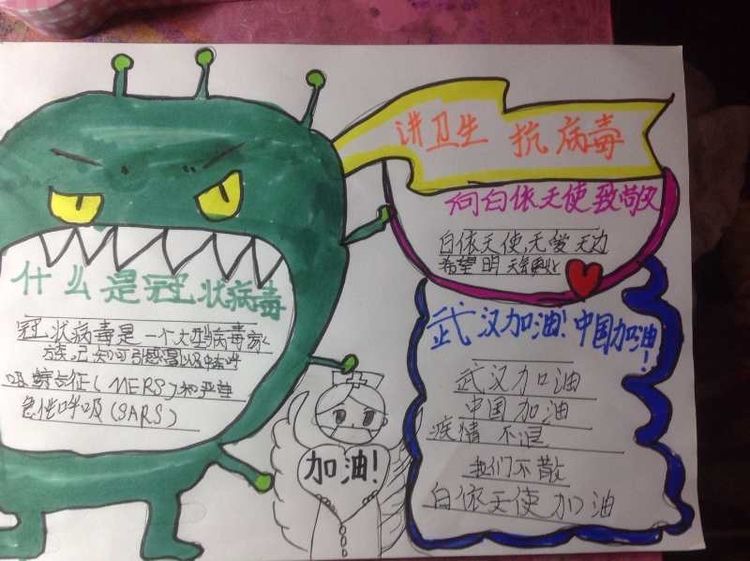 讲卫生 抗病毒
向白依天使致敬
白依天使,无爱无边
希望明天
什么是冠状病毒
冠状病毒是一个大型病毒家
方矣,已知可引感冒以及中东呼
吸综合征(MERS)和严重
急性呼吸(SARS)
加油!
武汉加油!中国加油!
武汉加油
中国加油
疫情不退
我们不散
白依天使加油